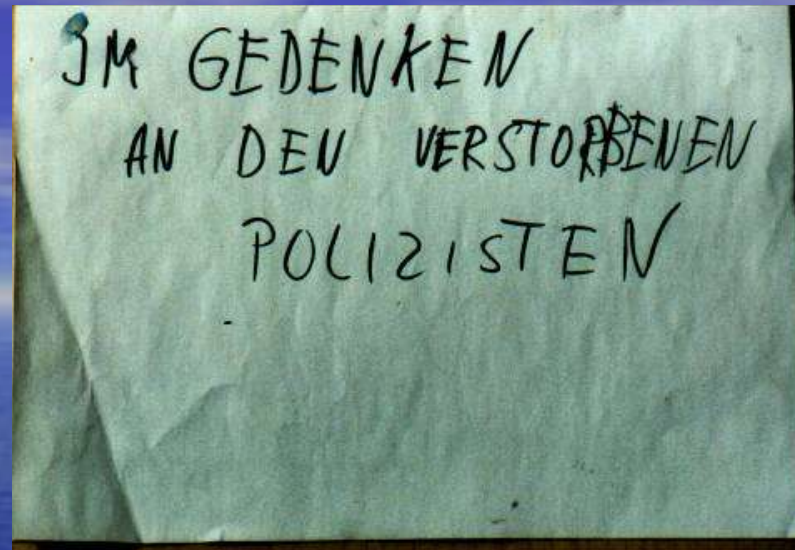 IM GEDENKEN
AN DEN VERSTORBENEN
POLIZISTEN